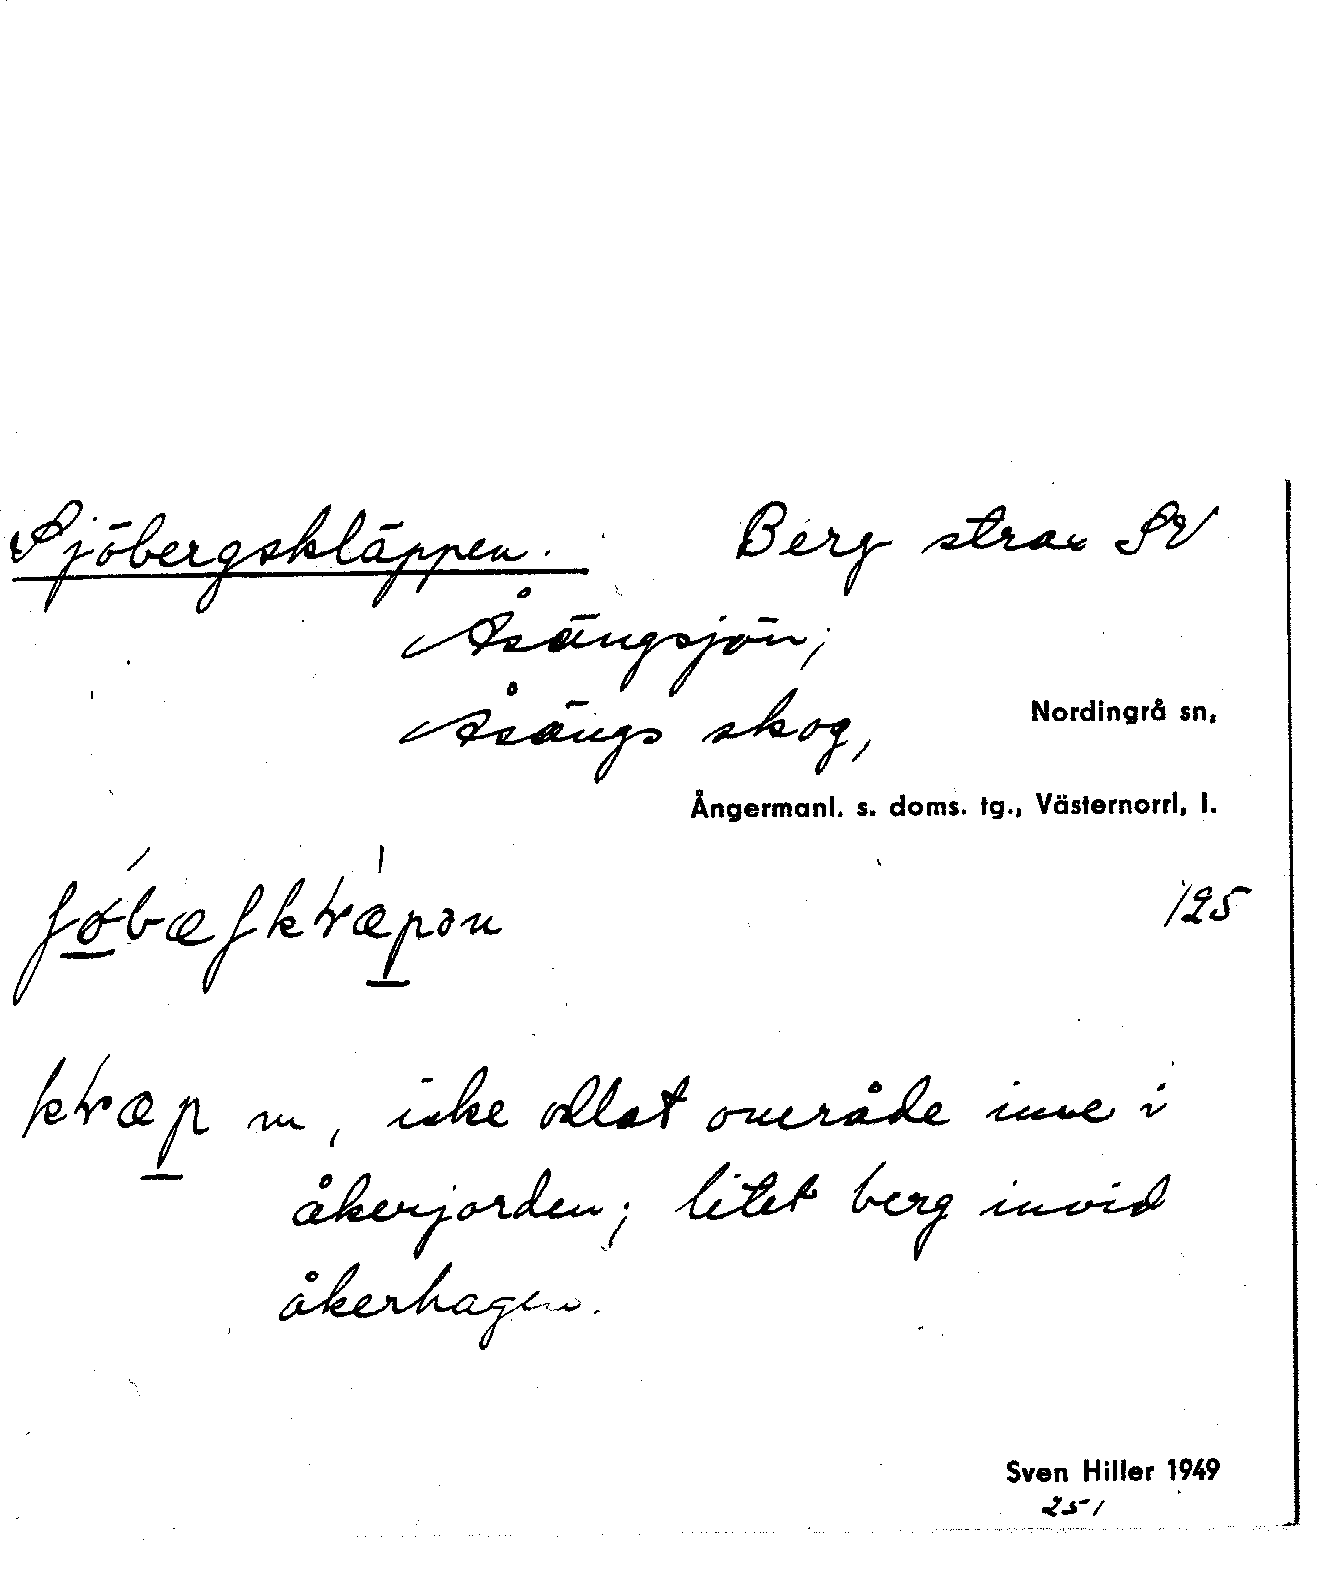 Sjöbergskläppen. Berg strax SV
Åsängsjön;
Åsängs skog,
Nordingrå sn,
Ångermanl. s. doms. tg., Västernorrl, l.
125
m, icke odlat område inne i
åkerjorden; litet berg invid
åkerhagen.
Sven Hiller 1949
251